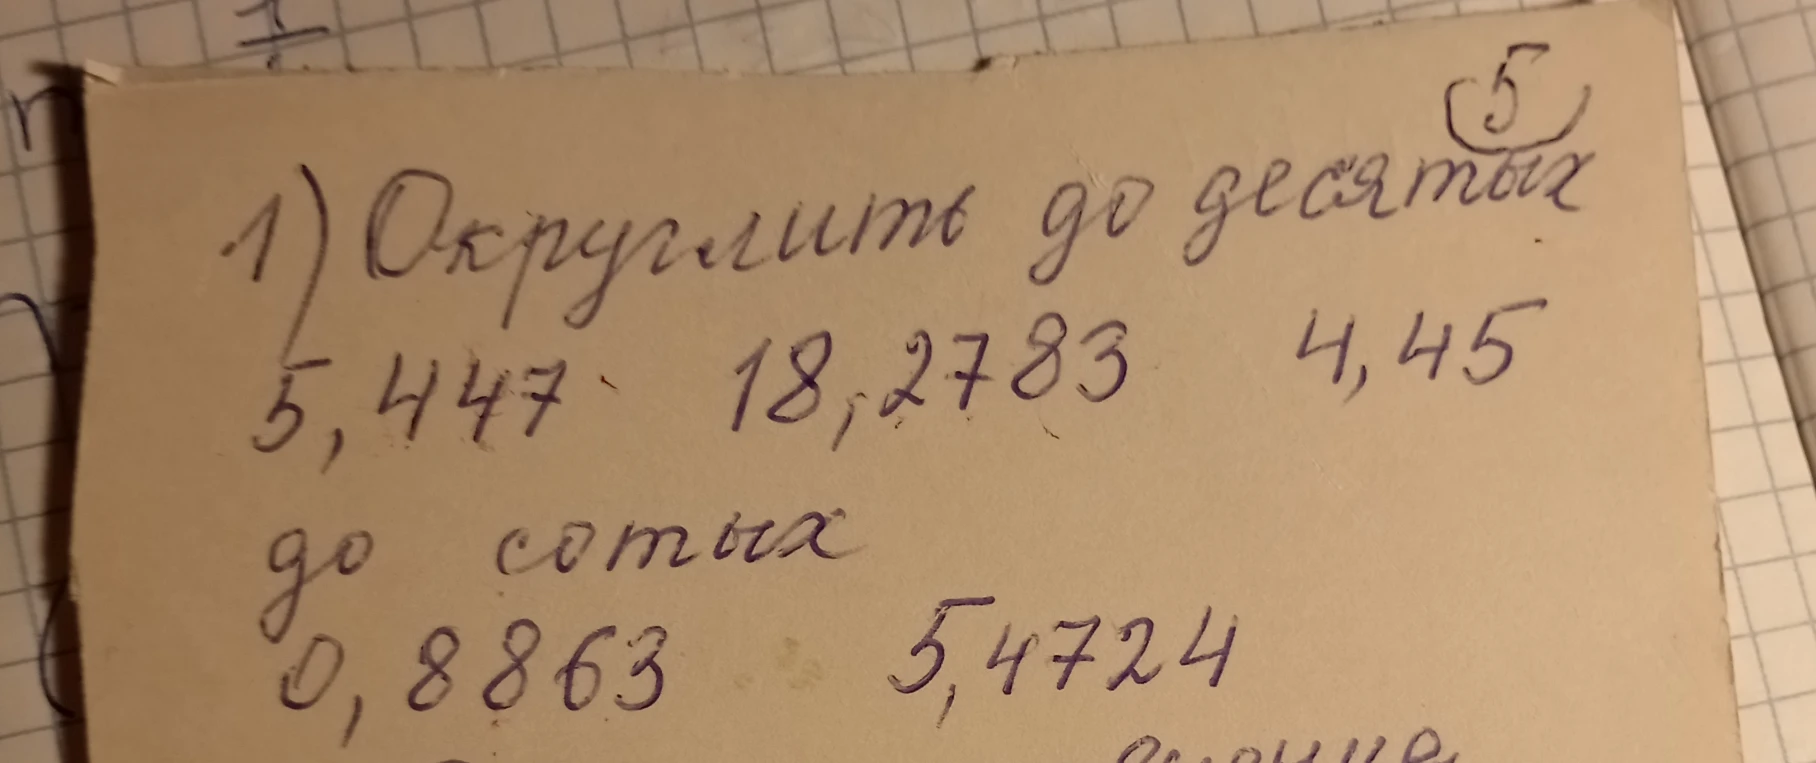 5
1) Округлить до десятых
5,447 18,2783 4,45
до сотых
0,8863 5,4724